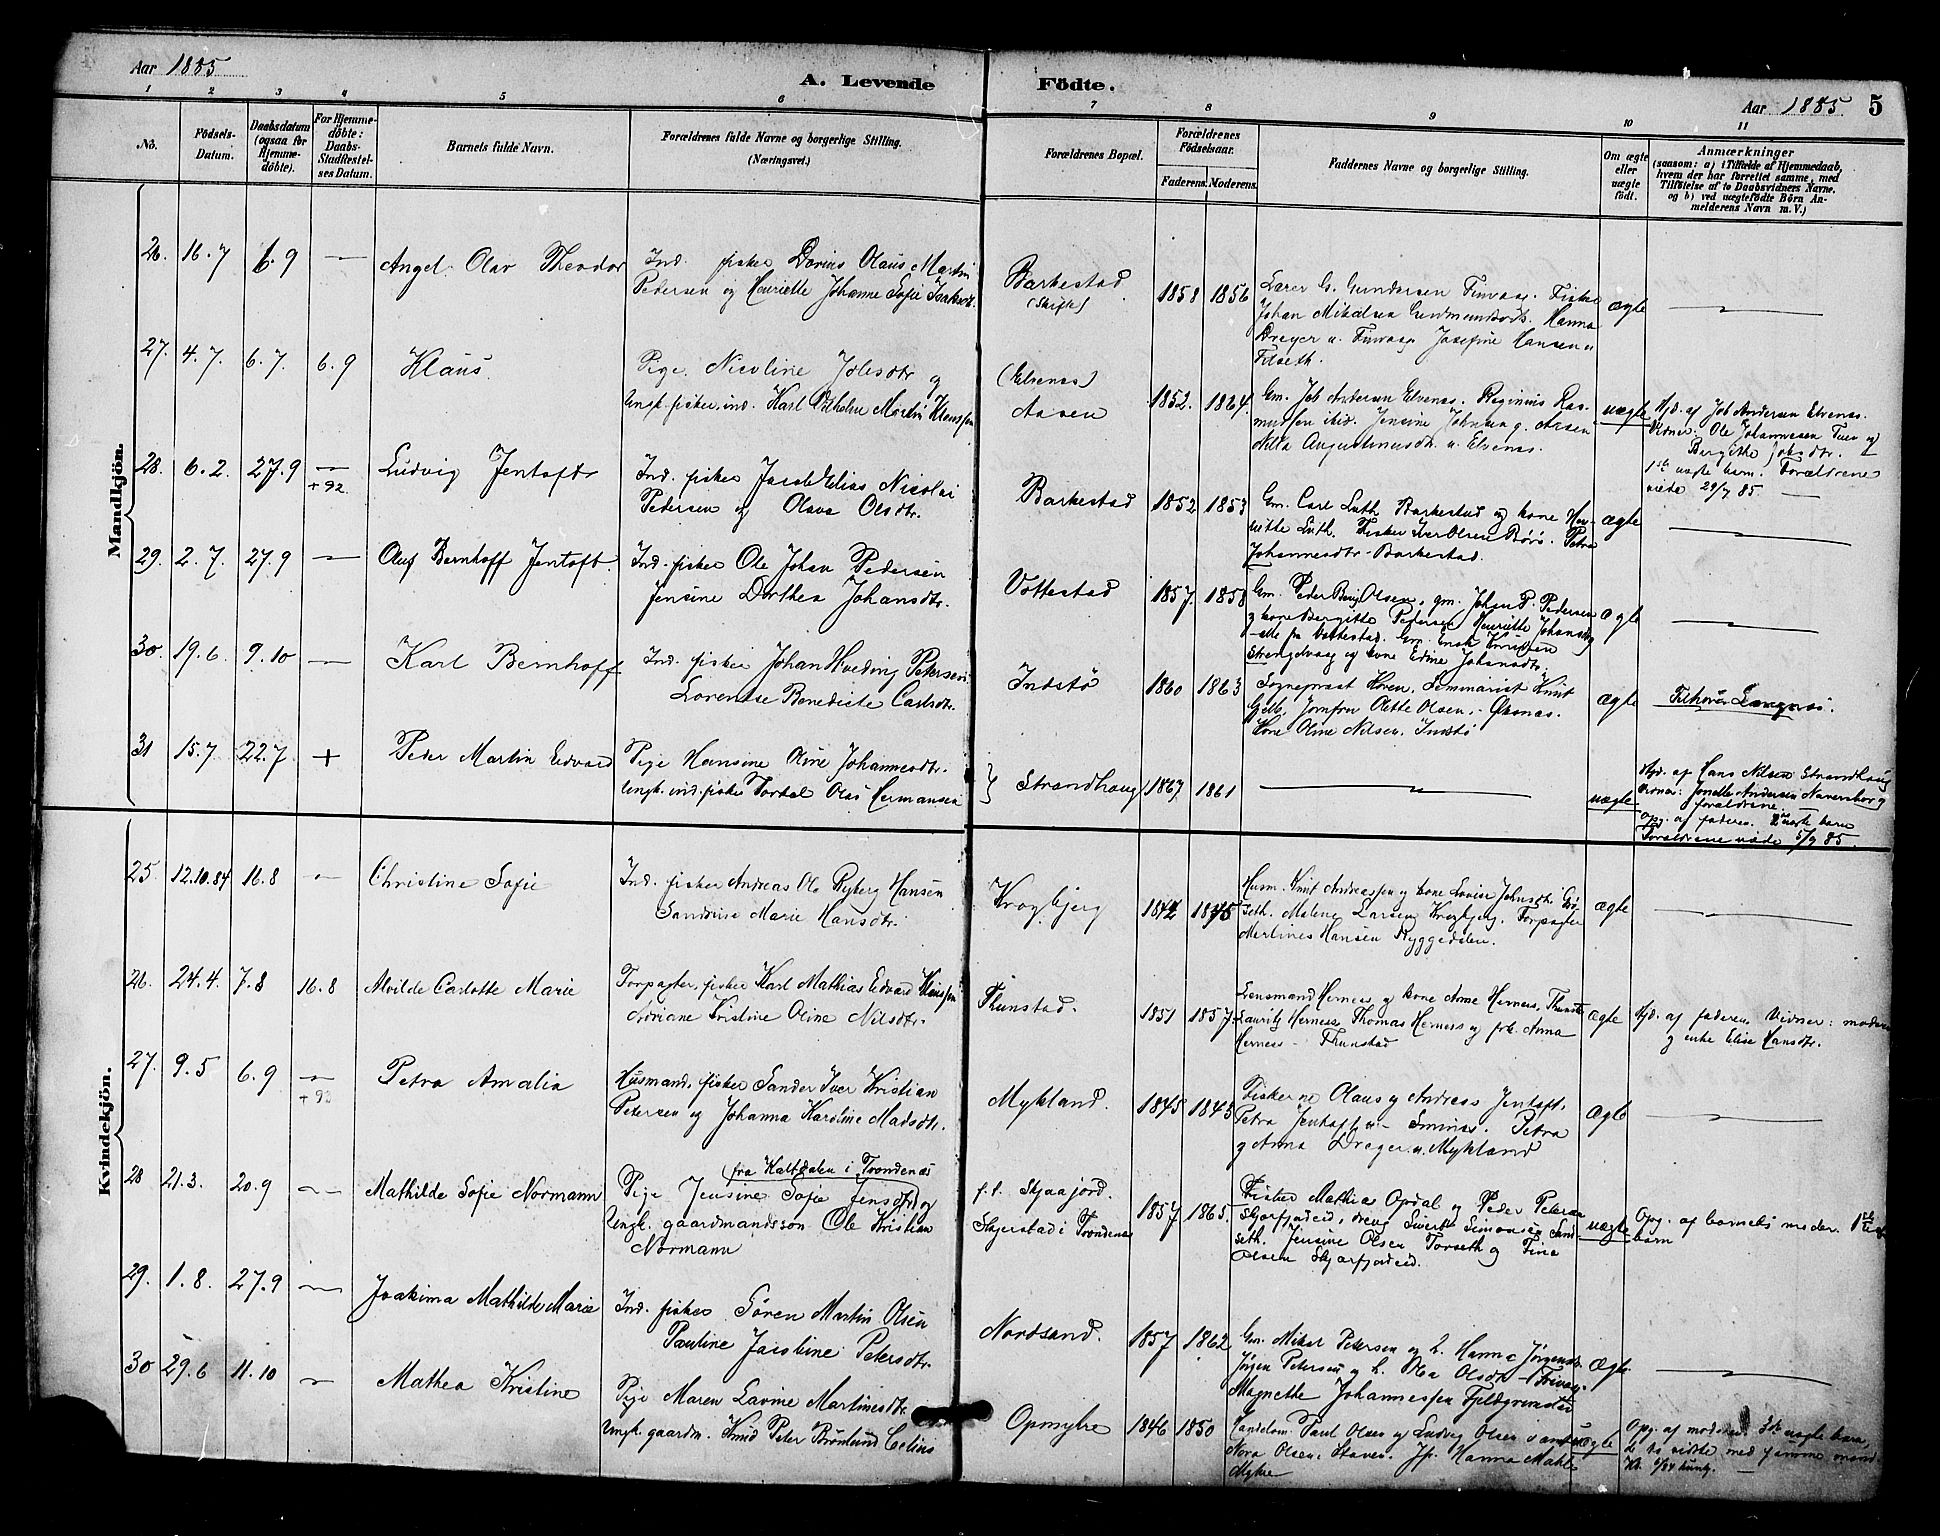 Aar 1885
A. Levende Födte.
Aar 1885 5
1 2 3 4 5 6 7 8 9 10 11
No.
Födsels-
Datum.
Daabsdatum
(ogsaa for
Hjemme-
döbte).
For Hjemme-
döbte:
Daabs-
Stadfæstel-
ses Datum.
Barnets fulde Navn.
Forældrenes fulde Navne og borgerlige Stilling.
(Næringsvei.)
Forældrenes Bopæl.
Forældrenes
Födselsaar.
Faderens. Moderens.
Faddernes Navne og borgerlige Stilling.
Om ægte
eller
uægte
födt.
Anmærkninger
(saasom: a) i Tilfælde af Hjemmedaab,
hvem der har forrettet samme, med
Tilföielse af to Daabsvidners Navne.
og b) ved uægtefödte Börn An-
melderens Navn m. V.)
Mandkjön.
26. 16.7 6.9 — Angel Olav Theodor
Ind. fisker Dorius Olaus Martin
Pedersen og Henriette Johanne Sofie
Barkestad
(Skifte)
1858 1856
Lærer G. Gundersen Finvaag. Fisker
Johan Mikalsen Hanna
Dreyer u. Finvaag Josefine Hansen u
ægte —
27. 4.7. 6.7. 6.9 Klaus.
Pige. Nicoline Jobsdtr og
ungk. fisker, ind. Karl Vilhelm Martin Klaussen
(Elvenes)
Aasen
1852. 1864.
Gm. Job Andersen Elvenes. Reginius Ras-
mussen ibid. Jensine Johnsen g. Aasen
Nilla Augustinusdtr. u. Elvenes.
uægte
Hjd. af Job Andersen Elvenes.
Vidner: Ole Johannesen Tuen og
Bergithe Jobsdtr.
1ste uægte barn. Forældrene
viede 29/7 85 —
28. 6.2. 27.9 — + 92. Ludvig Jentoft
Ind. fisker Jacob Elias Nicolai
Pedersen og Olava Olsdtr.
Barkestad 1852 1853
Gm. Carl Luth Barkestad og kone Hen-
riette Luth. Fisker Iver Olsen Börö. Petra
Johannesdtr Barkestad.
ægte —
29. 2.7. 27.9 — Oluf Bernhoff Jentoft.
Ind. fisker Ole Johan Pedersen
Jensine Dorthea Johansdtr.
Vottestad 1857. 1858
Gm. Peder Berg Olsen, gm. Johan P. Pedersen
og kone Bergitte Pedersen, Henriette Johansdtr
—alle fra Vottestad. Gm. Enok Knudsen
Strengelvaag og kone Edine Johansdtr.
ægte —
30. 19.6. 9.10 — Karl Bernhoff
Ind. fisker Johan Hveding Petersen
Lorentse Benedicte Carlsdtr.
Indstö 1860 1863
Sogneprest Hoven. Seminarist Knut
Jomfru Olette Olsen. Öksnes.
Kone Oline Nilsen, Indstö
ægte
31 15.7 22.7 + Peder Martin Edvard
Pige Hansine Oline Johannesdtr.
Ungk. ind. fisker Olai Hermansen
} Strandhaug 1867 1861 —
uægte
Hjd. af Hans Nilsen Strandhaug
Vidner: Andersen og
forældrene.
Opg. af faderen. uægte barn
Forældrene viede 5/9 85.
Kvindekjön.
25. 12.10.84 16.8 — Christine Sofie
Ind. fisker Andreas Ole Ryberg Hansen
Sandrine Marie Hansdtr.
Kragbjerg 1842 1845
Husm. Knut Andreassen og kone Lovise Johnsdtr.
Malene Larsen Kragbjerg. Forpagter
Martines Hansen Ryggedalen.
ægte —
26. 24.4. 7.8 16.8 Alvilde Carlotte Marie
Forpagter, fisker Karl Mathias Edvard Klaussen
Adriane Kristine Oline Nilsdtr.
Thunstad. 1851 1857.
Lensmand Herness og kone Anne Herness, Thunstad
Lauritz Herness, Thomas Herness og frk. Anna
Herness — Thunstad
ægte
Hjd. af faderen. Vidner: moderen
og enke Elise Hansdtr.
27. 9.5 6.9 — + 92 Petra Amalia
Husmand, fisker Sander Iver Kristian
Petersen og Johanna Karoline Madsdtr.
Mykland. 1845 1845
Fiskerne Olaus og Andreas Jentoft,
Petra Jentoft u. Sminæs. Petra
og Anna Dreyer u. Mykland
ægte —
28 21.3. 20.9 — Mathilde Sofie Normann
fra Kaltdalen i Trondenæs
Pige Jensine Sofie Jensdtr og
Ungk. gaardmandssön Ole Kristian
Normann
f.t. Skjaajord.
Skjerstad i Trondenæs
1857 1865.
Fisker Mathias Opdal og Peder Petersen
Skjærfjordeid, dreng Sivert Simonsen
Jensine Olsen Torseth og Fine
Olsen Skjærfjordeid.
uægte
Opg. af barnets moder. 1ste
barn
29. 1.8. 27.9 — Joakima Mathilde Marie
Ind. fisker Sören Martin Olsen
Pauline Jacobine Petersdtr.
Nordsand. 1857 1862
Gm. Mikal Petersen og h. Hanna Jörgensdtr.
Jörgen Petersen og h. Olsdtr
Magnethe Johannessen
ægte —
30 29.6 11.10 — Mathea Kristine
Pige Maren Lavine Martinesdtr
Ungk. gaardm. Knud Peter Brönlund Celius
Opmyhre 1846 1850
Handelsm. Paul Olsen og Ludvig Olsen
Nora Olsen, Staven. Jfr. Hanna
Myhre
uægte
Opg. af moderen. 3die uægte barn,
de to sidste med samme mand.